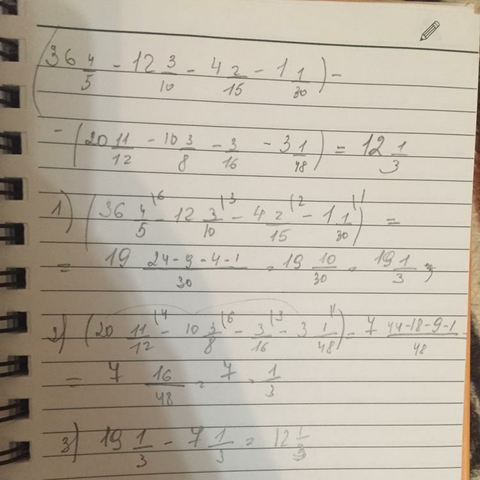 (36 4/5 - 12 3/10 - 4 2/15 - 1 1/30) -
- (20 11/12 - 10 3/8 - 3/16 - 3 1/48) = 12 1/3
1) (36 4/5 |6 - 12 3/10 |3 - 4 2/15 |2 - 1 1/30 |1) =
= 19 24-9-4-1/30 = 19 10/30 = 19 1/3
2) (20 11/12 |4 - 10 3/8 |6 - 3/16 |3 - 3 1/48 |1) = 7 44-18-9-1/48
= 7 16/48 = 7 1/3
3) 19 1/3 - 7 1/3 = 12 1/3